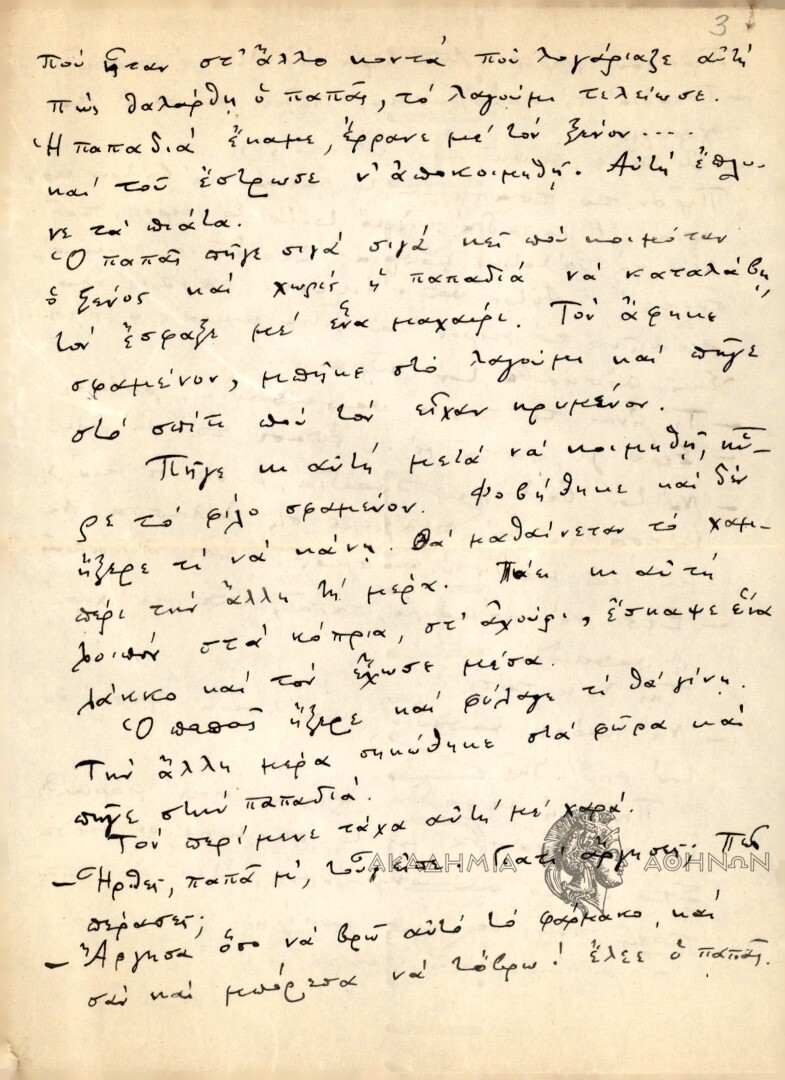 3
ποὺ ἦταν στ' ἄλλο κοντά ποὺ λογάριαξε αὐτή
πὼς θαλάρθη ὁ παπᾶς, τό λαγούμι τελείωσε.
Ἡ παπαδιά ἔκαμε, ἔρρανε μέ τόν ξένον ....
καί τοῦ ἔστρωσε ν' ἀποκοιμηθῆ. Αὐτή ἔπλυ-
νε τά πιάτα.
Ὁ παπᾶς πῆγε σιγά σιγά κεῖ πού κοιμόταν
ὁ ξένος καί χωρίς ἡ παπαδιά νά καταλάβη,
τόν ἔσφαξε μέ ἕνα μαχαίρι. Τόν ἄφηκε
σφαμένον, μπῆκε στό λαγούμι καί πῆγε
στό σπίτι πού τόν εἶχαν κρυμένον.
Πῆγε κι αὐτή μετά νά κοιμηθῆ, ηὗ-
ρε τό φίλο σφαμένον. Φοβήθηκε καί δέν
ἤξερε τί νά κάνη. Θά μαθαίνεταν τό χαμ-
πέρι τήν ἄλλη τή μέρα. Πάει κι αὐτή
λοιπόν στά κόπρια, στ' ἀχούρι, ἔσκαψε ἕνα
λάκκο καί τόν ἔχωσε μέσα.
Ὁ παπᾶς ἤξερε καί φύλαγε τί θά γίνη.
Τήν ἄλλη μέρα σηκώθηκε στά φῶρα καί
πῆγε στήν παπαδιά.
Τόν περίμενε τάχα αὐτή μέ χαρά.
— Ἦρθες, παπᾶ μ', τοῦ εἶπε. Γιατί ἄργησες; Πῶς
πέρασες;
— Ἄργησα ὅσο νά βρῶ αὐτό τό φάρμακο, καί
σάν καί μπόρεσα νά τόβρω! ἔλεε ὁ παπᾶς.
ΑΚΑΔΗΜΙΑ ΑΘΗΝΩΝ